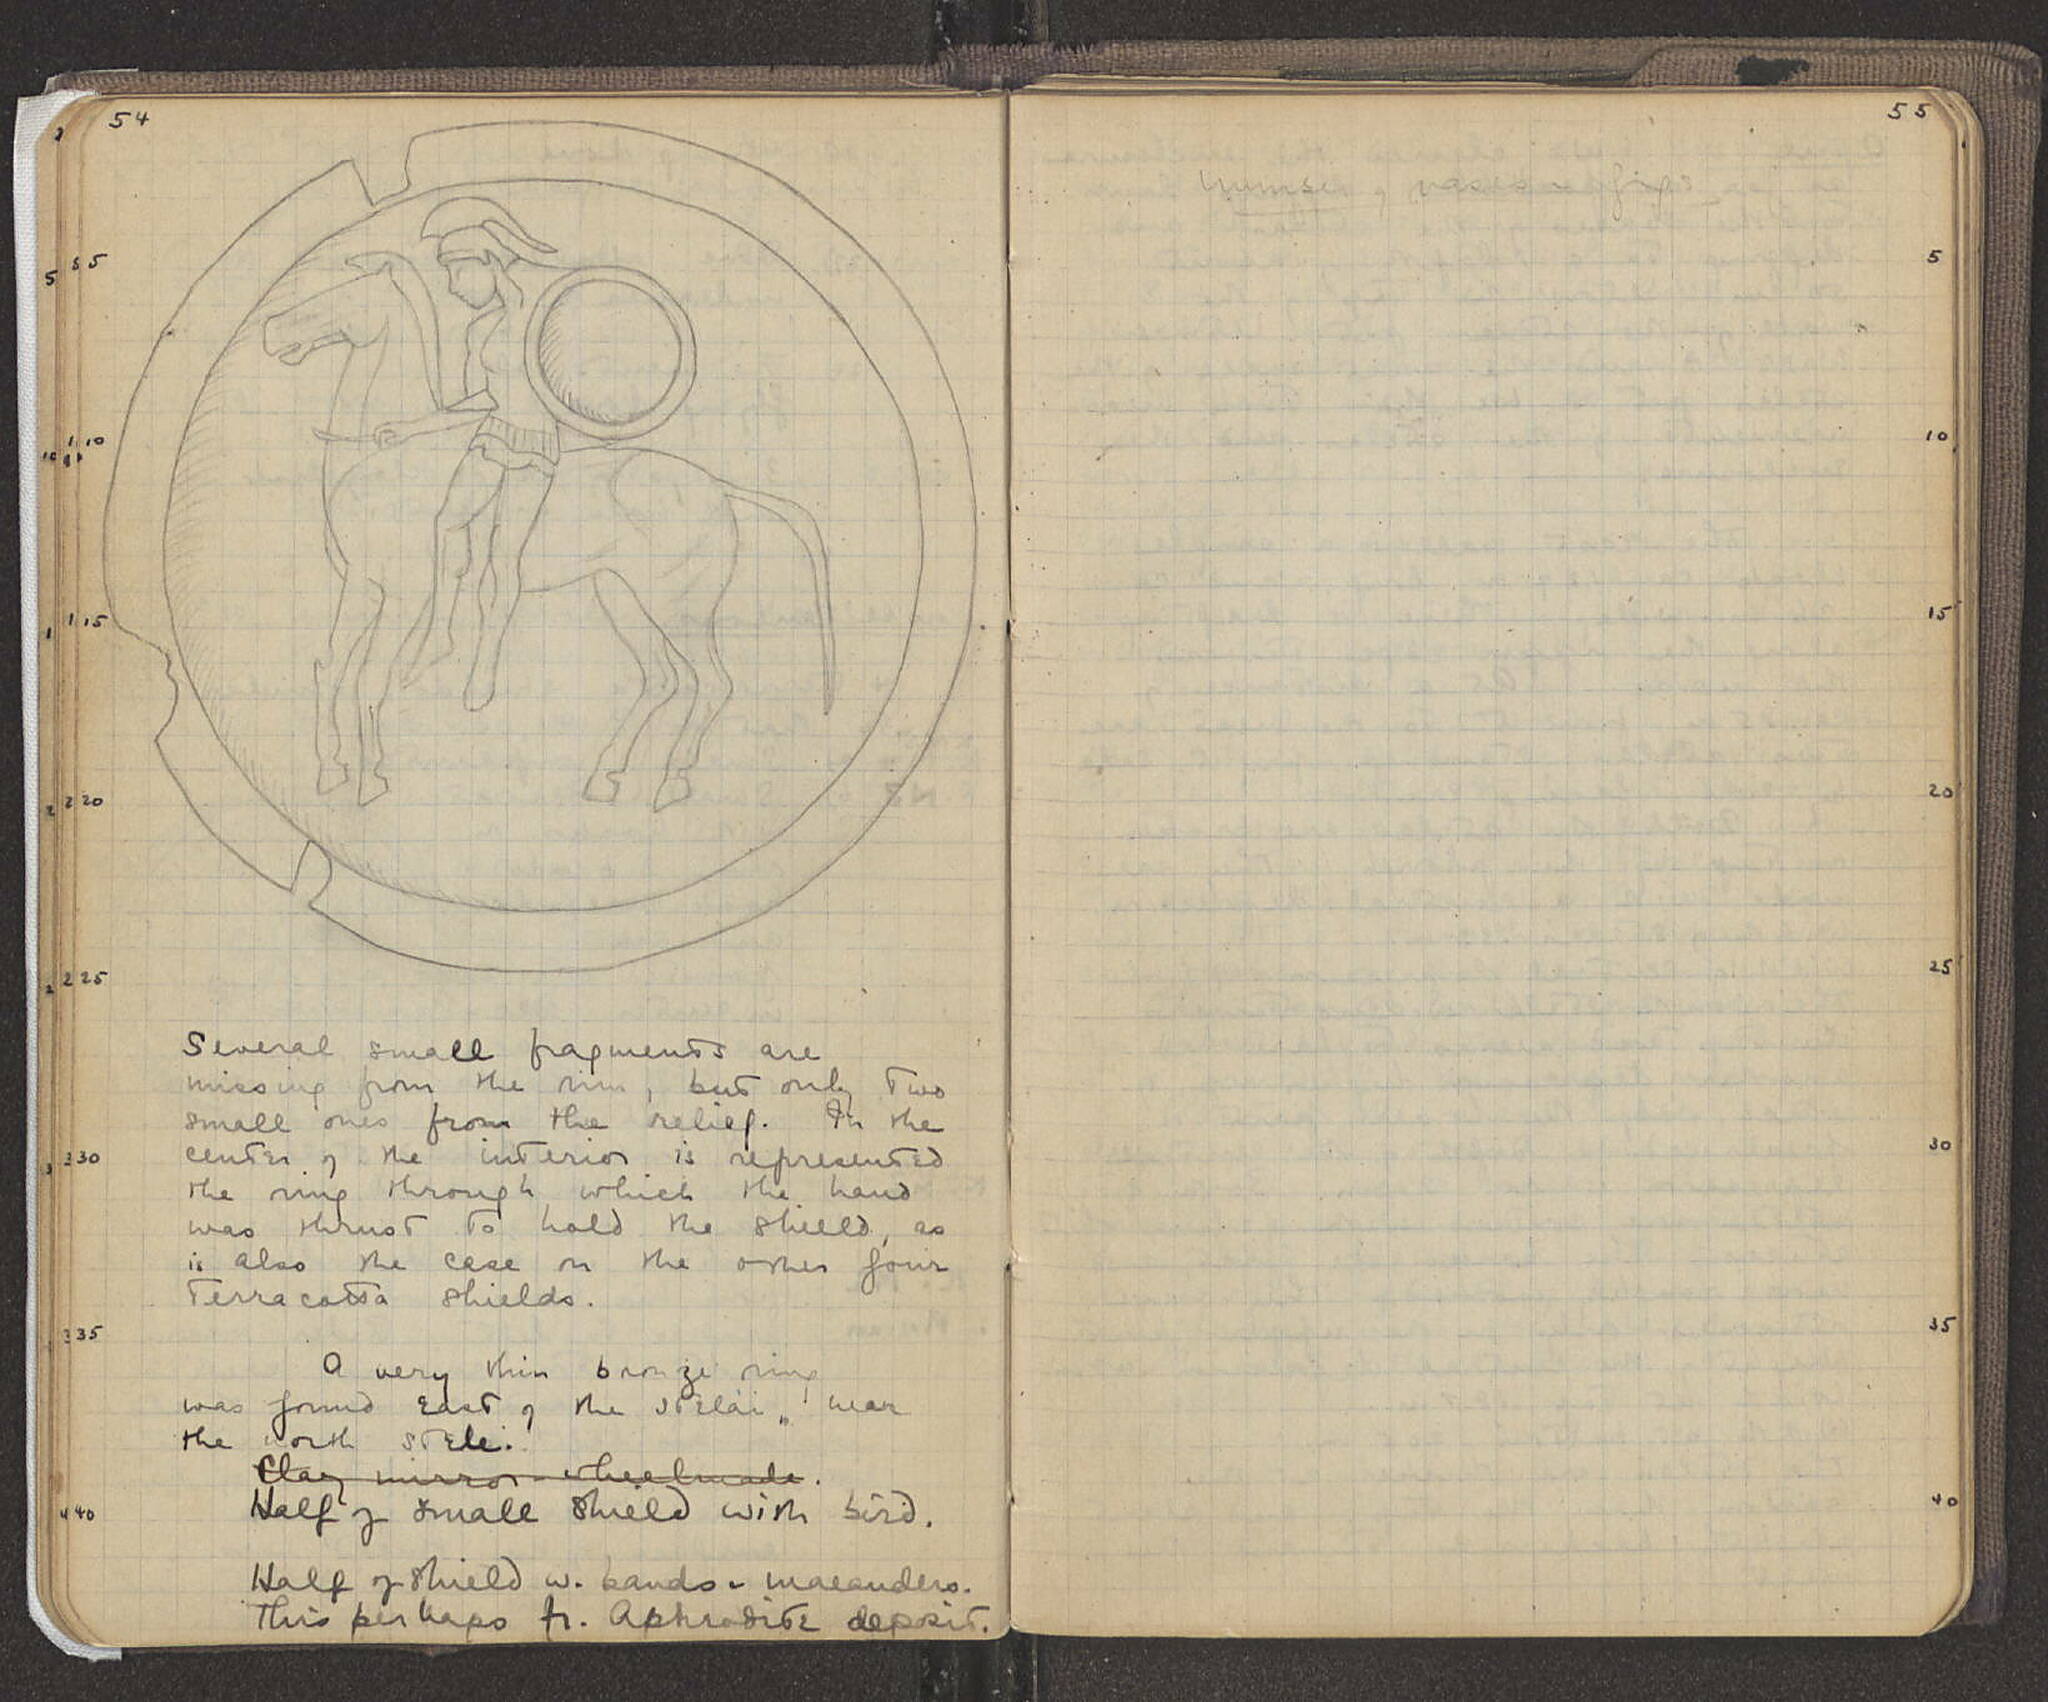 54
5
10
15
20
25
Several small fragments are
missing from the rim, but only two
small ones from the relief. In the
center of the interior is represented
the ring through which the hand
was thrust to hold the shield, as
is also the case in the other four
terracotta shields.
30
35
A very thin bronze ring
was found East of the stelai, near
the north stele.
Clay mirror - wheelmade.
Half of small shield with bird.
40
Half of shield w. bands - maeanders.
This perhaps fr. Aphrodite deposit.
55
vases
5
10
15
20
25
30
35
40